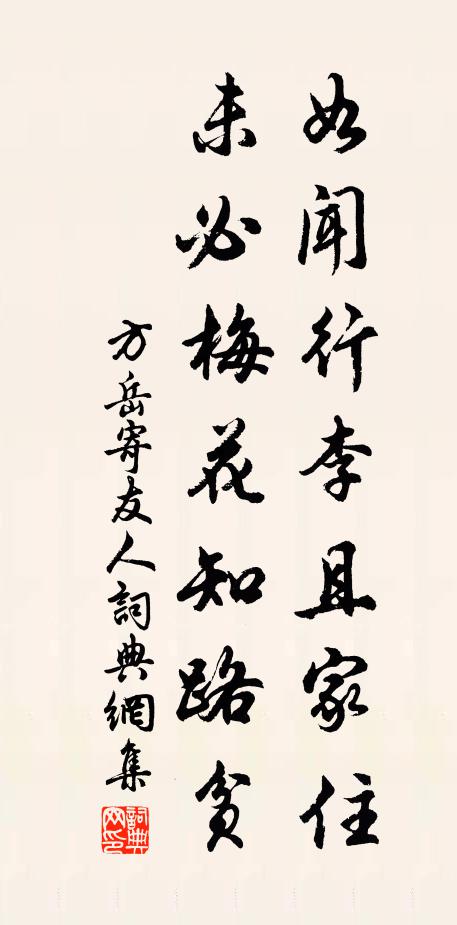 如闻行李且家住
未必梅花知路贫
方岳寄友人詞典網集
詞典
网印